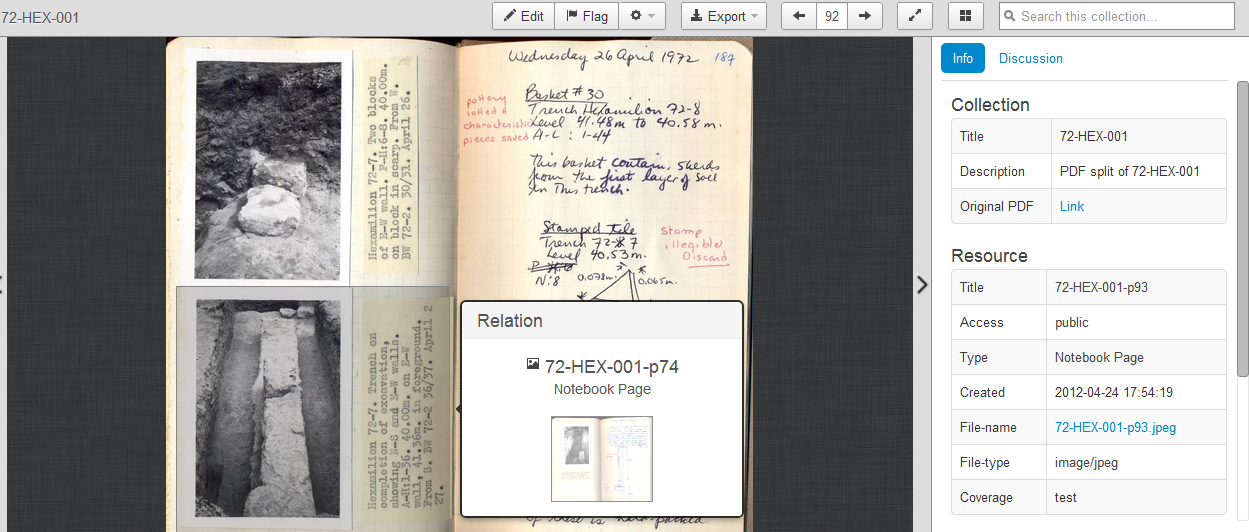 72-HEX-001
Edit
Flag
Export
92
Search this collection...
Hexamilion 72-7. Two blocks
of E-W wall. F-H:6-8. 40.00m.
on block in scarp. From W.
BW 72-2. 30/31. April 26.
Hexamilion 72-7. Trench on
completion of excavation,
showing N-S and E-W walls.
A-H:1-36. 40.00m. on E-W
wall, 41.36m. in foreground.
From S. BW 72-2 36/37. April 2
27.
Wednesday 26 April 1972
187
pottery
lotted &
characteristic
pieces saved
Basket # 30
Trench Hexamilion 72-8
Level 41.48m to 40.58 m.
A-C : 1-44
This basket contains sherds
from the first layer of soil
in this trench.
Stamped tile
Trench 72-7
Level 40.53m.
N:8
0.078m.
0.065m.
Stamp
illegible
Discard
of these is hard-packed
Relation
72-HEX-001-p74
Notebook Page
Info
Discussion
Collection
Title 72-HEX-001
Description PDF split of 72-HEX-001
Original PDF Link
Resource
Title 72-HEX-001-p93
Access public
Type Notebook Page
Created 2012-04-24 17:54:19
File-name 72-HEX-001-p93.jpeg
File-type image/jpeg
Coverage test